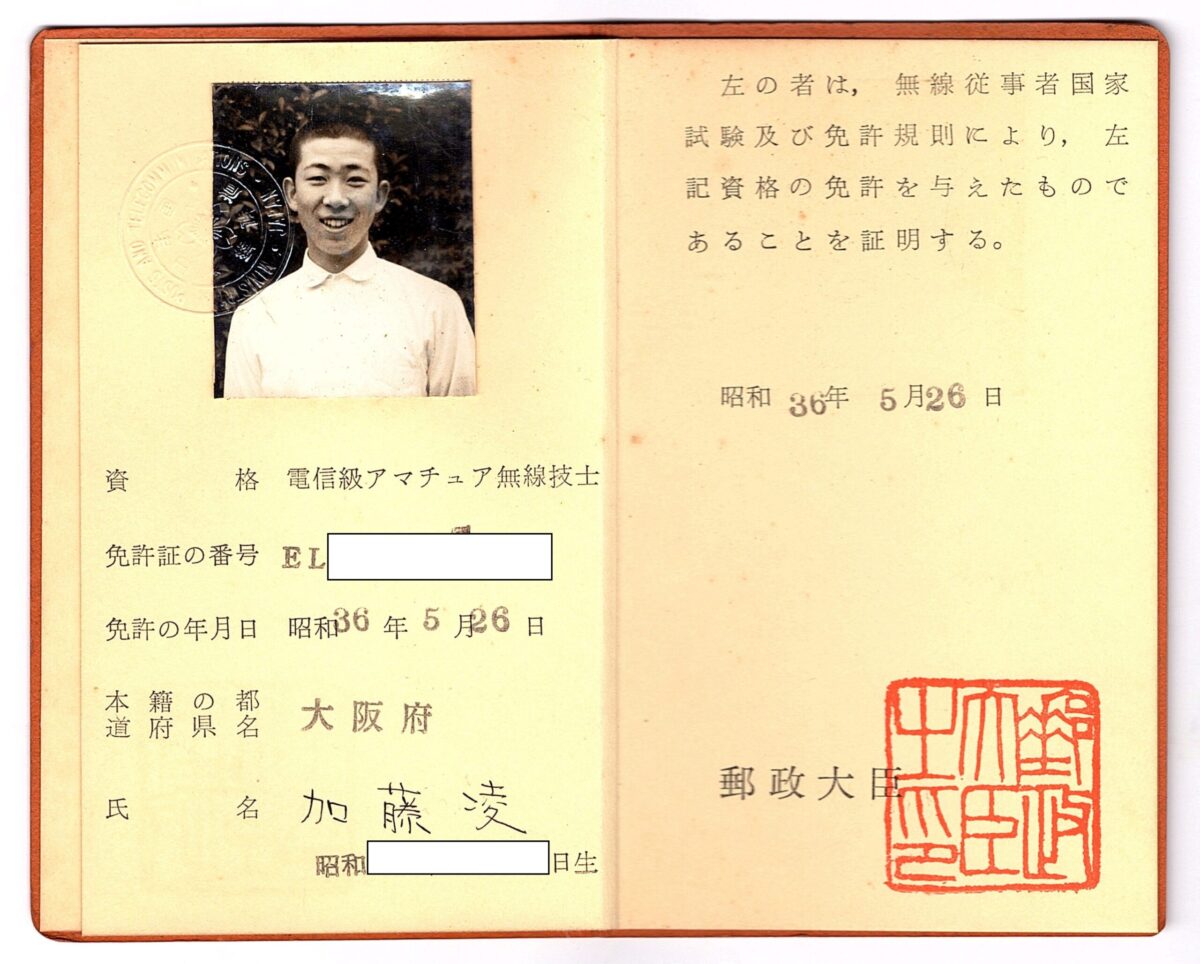 資格 電信級アマチュア無線技士
免許証の番号 EL
免許の年月日 昭和36年5月26日
本籍の都道府県名 大阪府
氏名 加藤凌
昭和 日生
左の者は, 無線従事者国家
試験及び免許規則により, 左
記資格の免許を与えたもので
あることを証明する。
昭和36年5月26日
郵政大臣
郵政大臣之印